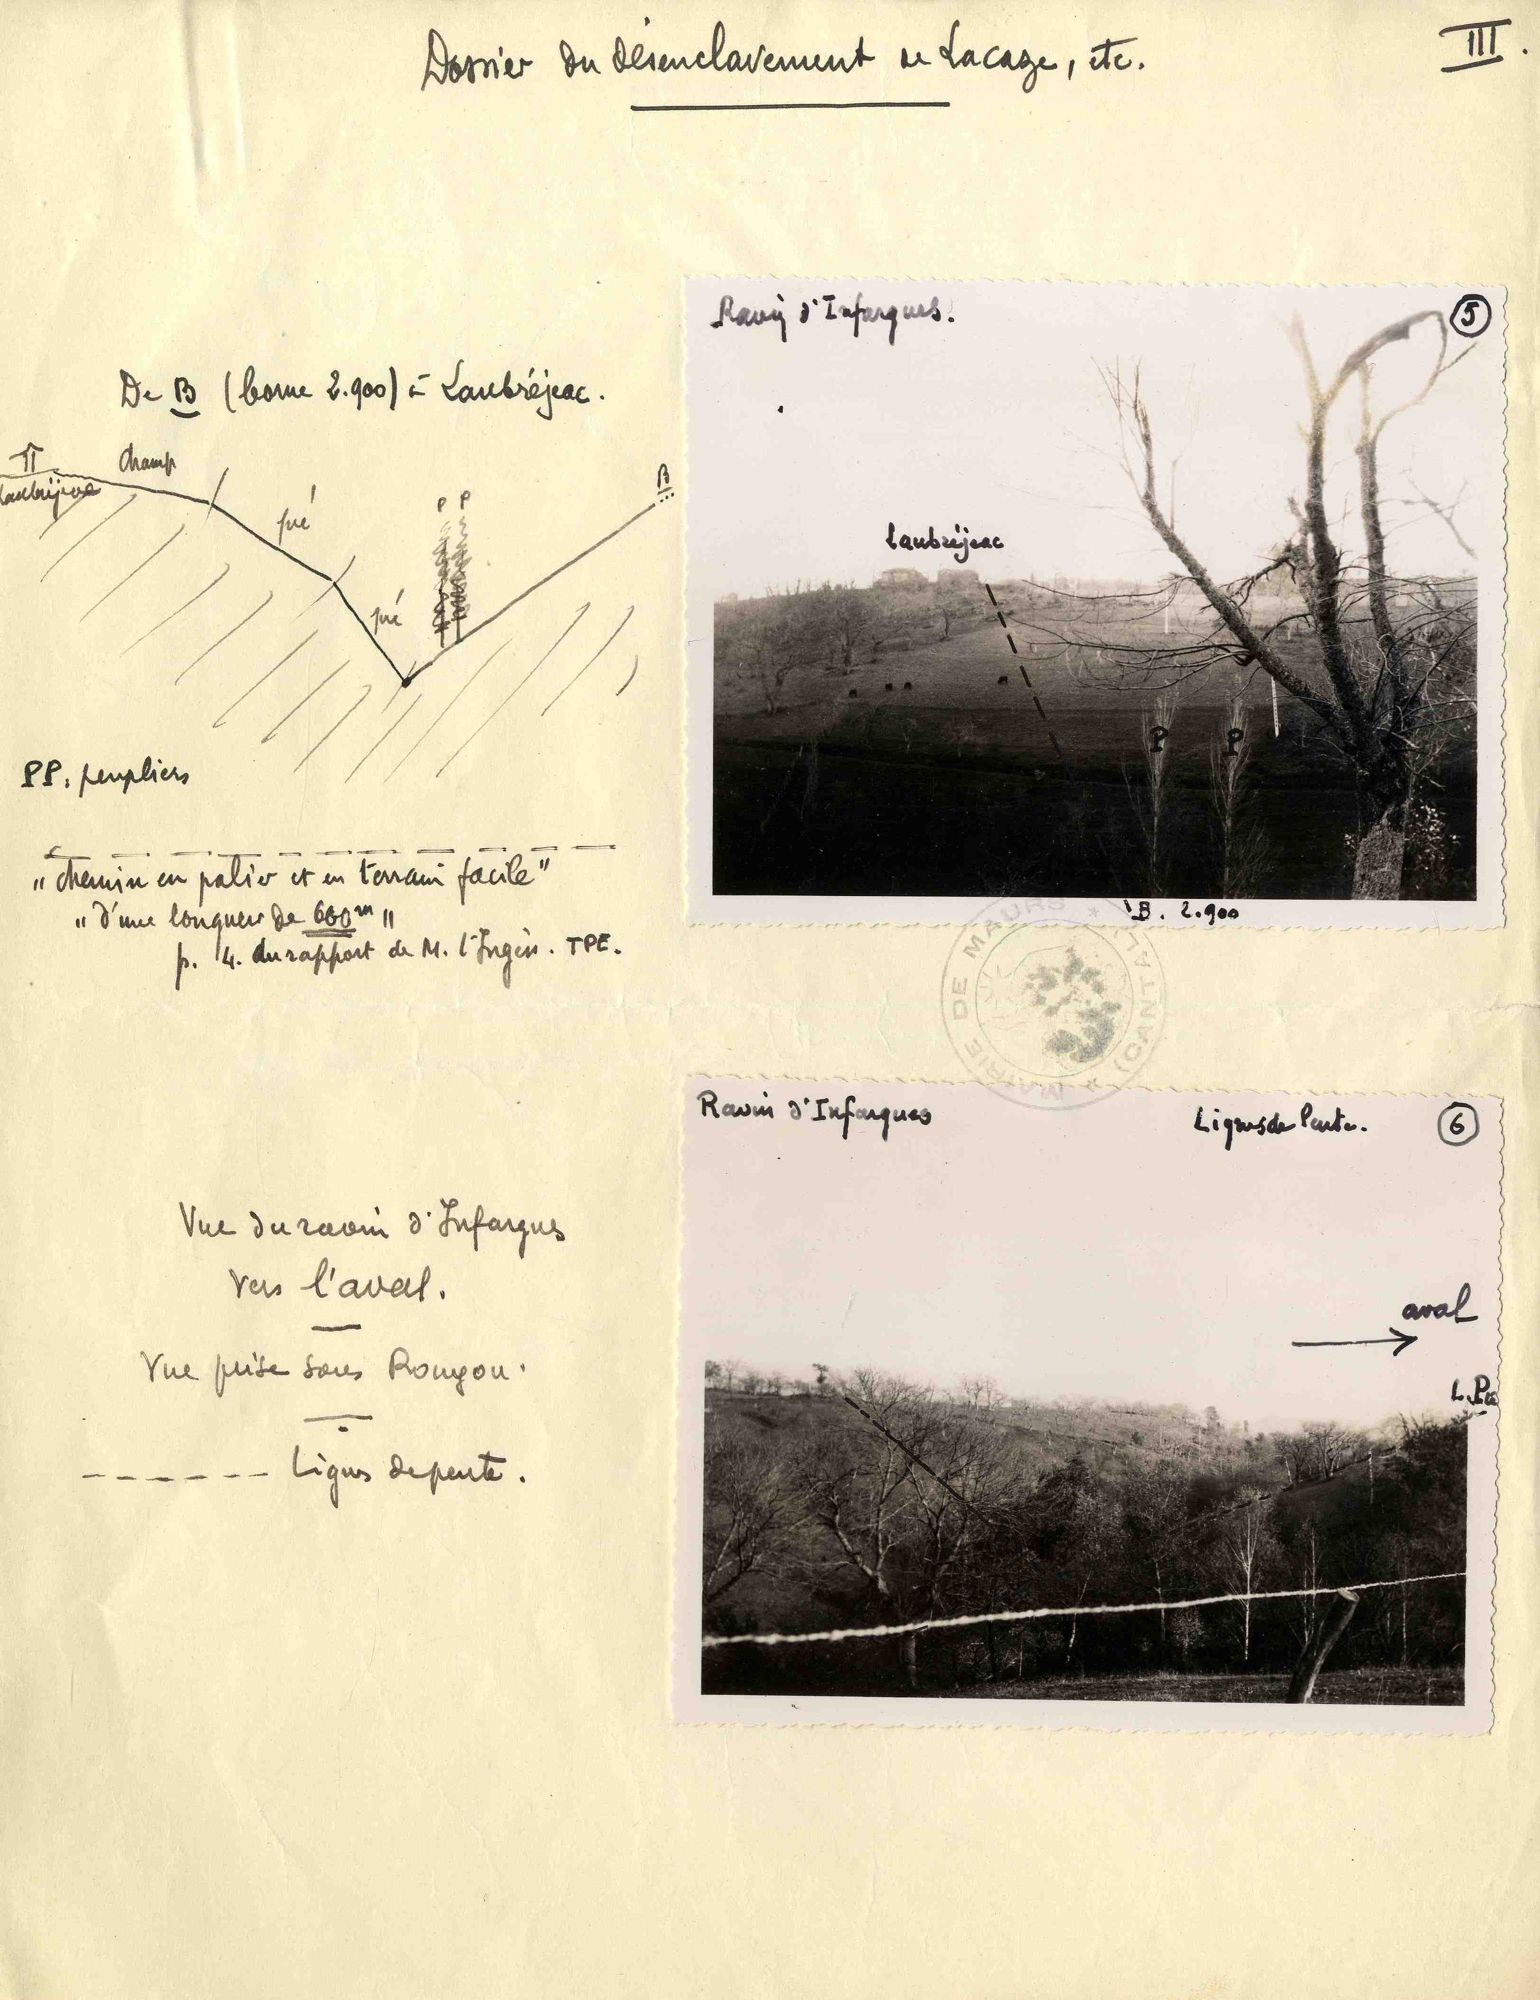 Dossier du désenclavement de Lacaze, etc.
III.
De B (borne 2.900) à Laubréjeac.
champ
Laubréjeac
pré
pré
P P
B
PP. peupliers
"chemin en palier et en terrain facile"
"d'une longueur de 600m"
p. 4. du rapport de M. l'Ingén. TPE.
Ravin d'Infargues.
5
Laubréjeac
P P
B. 2.900
MAIRIE DE MAURS (CANTAL)
Ravin d'Infargues
Lignes de Pente.
6
aval
L. Pte
Vue du ravin d'Infargues
vers l'aval.
Vue prise sous Rougou.
Lignes de pente.